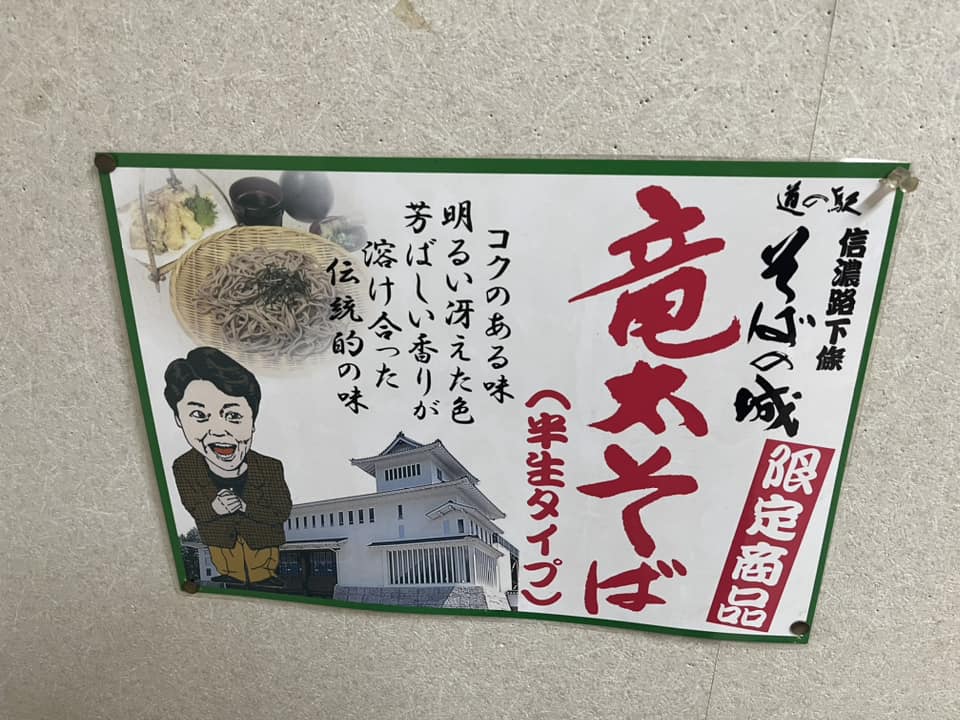 道の駅
信濃路下條
そばの城
限定商品
竜太そば
(半生タイプ)
コクのある味
明るい冴えた色
芳ばしい香りが
溶け合った
伝統的の味